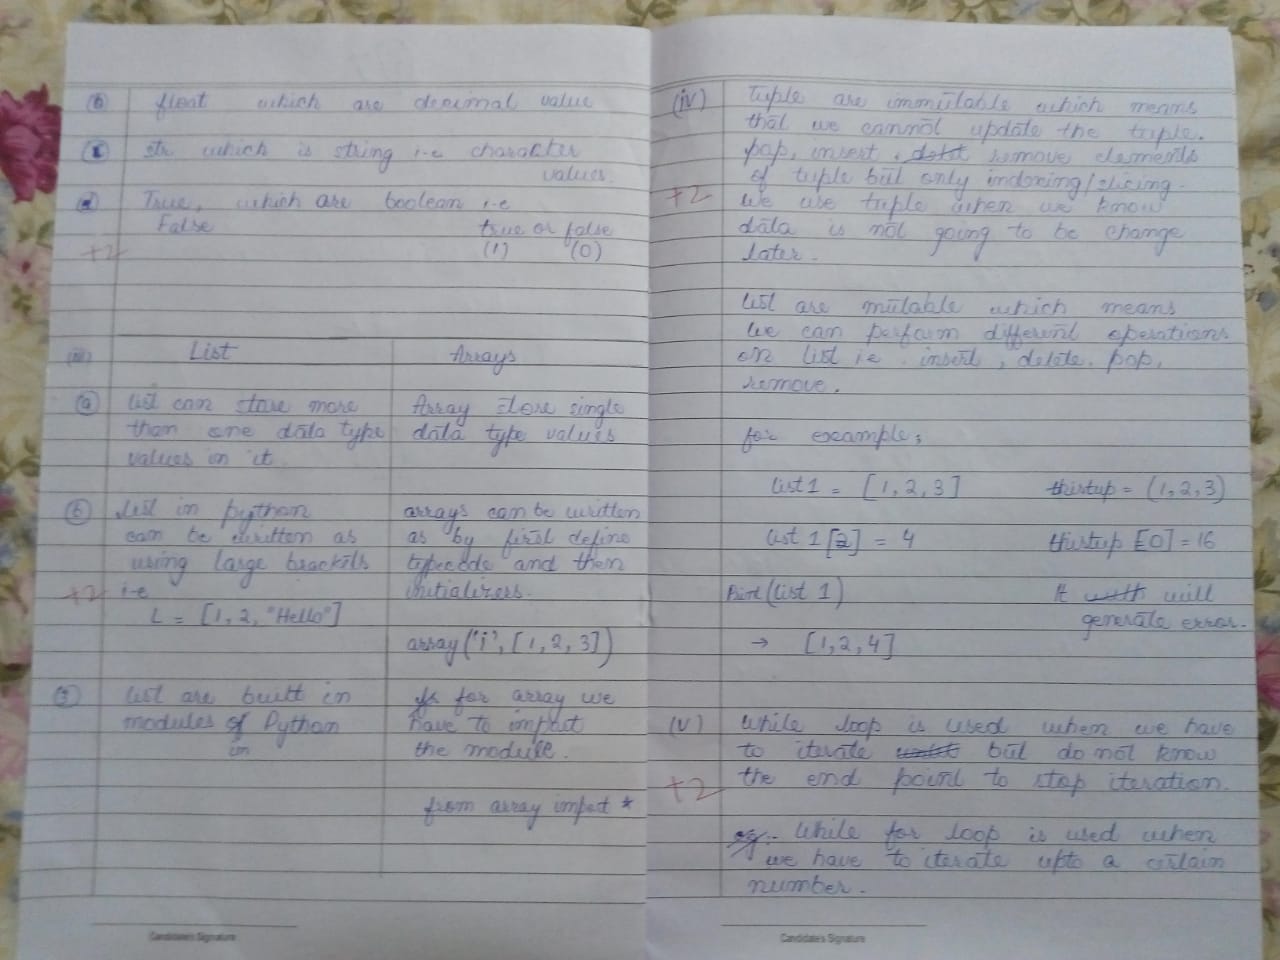 (b) float which are decimal value
(c) str which is string i-e charakter
values.
(d) True, which are boolean i-e
False true or false
+2 (1) (0)
(iii) List Arrays
(a) List can store more
than one data type
values in it
Array store single
data type values
(b) List in python
can be written as
using large brackets
+2 i-e
L = [1, 2, "Hello"]
arrays can be written
as by first define
typecode and then
initializers.
array('i', [1, 2, 3])
(3) List are built in
modules of Python
in
for array we
have to import
the module.
from array import *
Candidate's Signature
(iv) Tuple are immutable which means
that we cannot update the truple.
pop, insert, remove elements
of tuple but only indexing/slicing.
+2 We use truple when we know
data is not going to be change
later.
List are mutable which means
we can perform different operations
on list i.e. insert, delete, pop,
remove.
for example:
List 1 = [1, 2, 3] thistup = (1, 2, 3)
List 1 [2] = 4 thistup [0] = 16
Print (List 1) It will
generate error.
→ [1, 2, 4]
(v) While loop is used when we have
to iterate but do not know
+2 the end point to stop iteration.
eg:- While for loop is used when
we have to iterate upto a certain
number.
Candidate's Signature